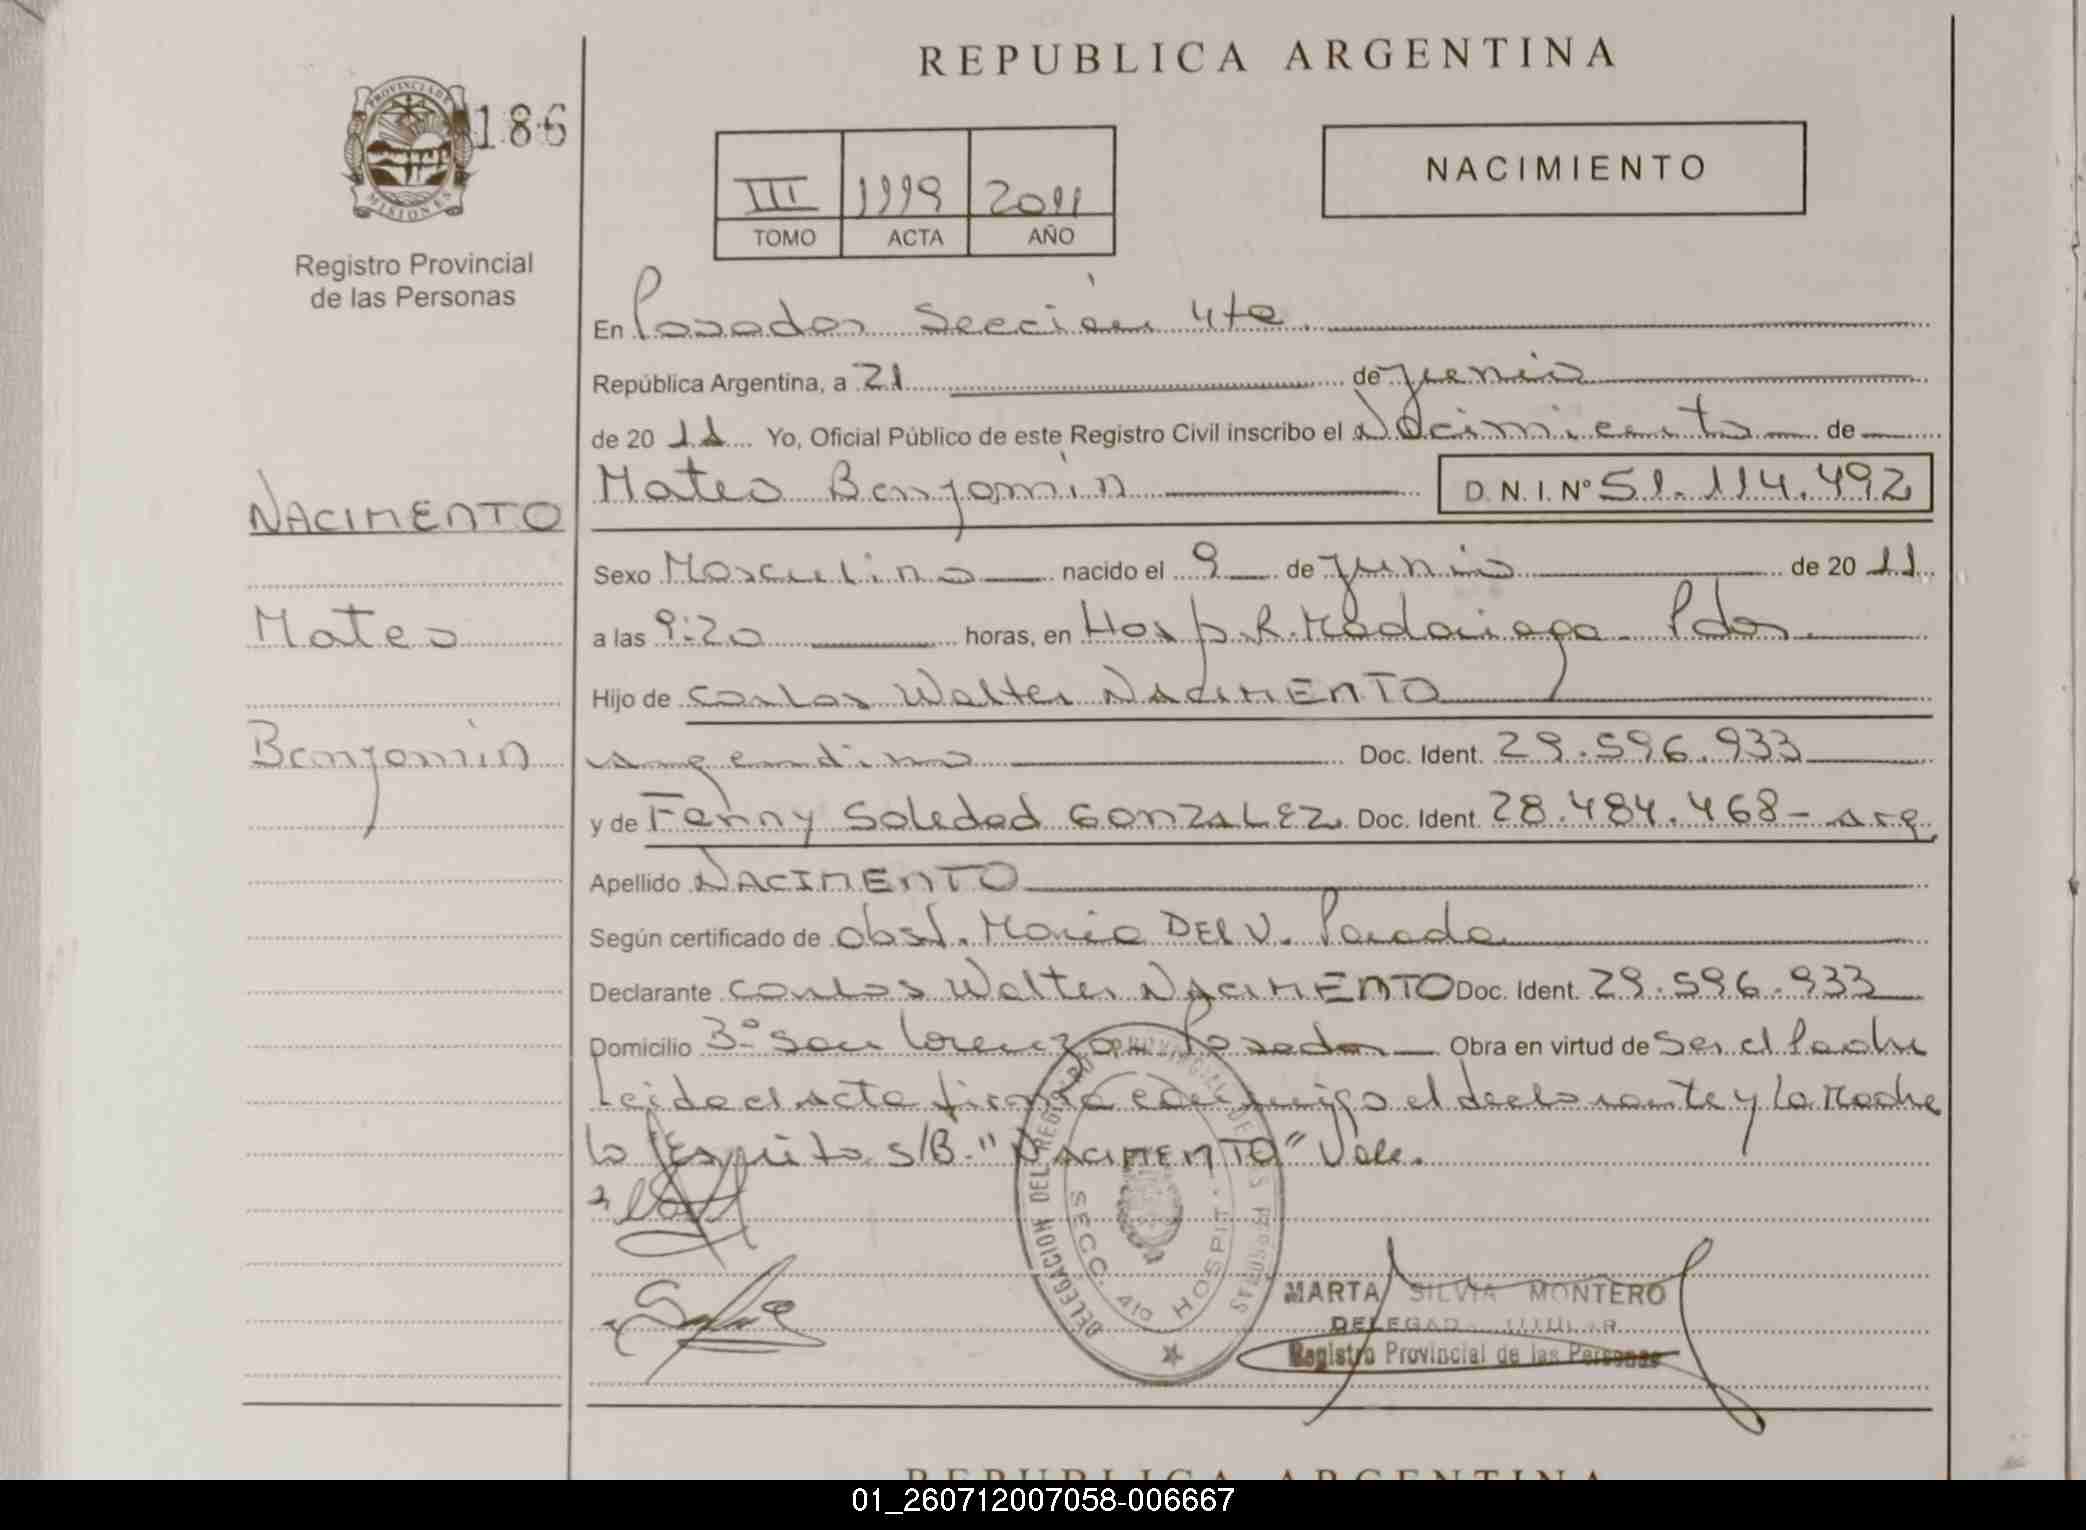 REPUBLICA ARGENTINA
PROVINCIA DE
MISIONES
186
Registro Provincial
de las Personas
III 1119 2011
TOMO ACTA AÑO
NACIMIENTO
En Posadas Sección 4ta
República Argentina, a 21 de junio
de 2011 Yo, Oficial Público de este Registro Civil inscribo el Nacimiento de
Mateo Benjamín D.N.I.Nº 51.114.492
NACIMENTO
Mateo
Benjamín
Sexo Masculino nacido el 9 de junio de 2011
a las 9:20 horas, en Hosp. R. Madariaga - Pdas.
Hijo de Carlos Walter NACIMENTO
argentino Doc. Ident. 29.596.933
y de Fanny Soledad GONZALEZ Doc. Ident. 28.484.468 - arg
Apellido NACIMENTO
Según certificado de obst. María DEL V. Parada
Declarante Carlos Walter NACIMENTO Doc. Ident. 29.596.933
Domicilio San Lorenzo - Posadas Obra en virtud de ser el Padre
Leída el acta firma conmigo el declarante y la Madre
lo s/B. "NACIMENTO" Vale.
DELEGACION DEL REGISTRO PROVINCIAL DE LAS PERSONAS
SECC. 4ta HOSPIT.
MARTA SILVIA MONTERO
DELEGADA TITULAR
Registro Provincial de las Personas
REPUBLICA ARGENTINA
01_260712007058-006667